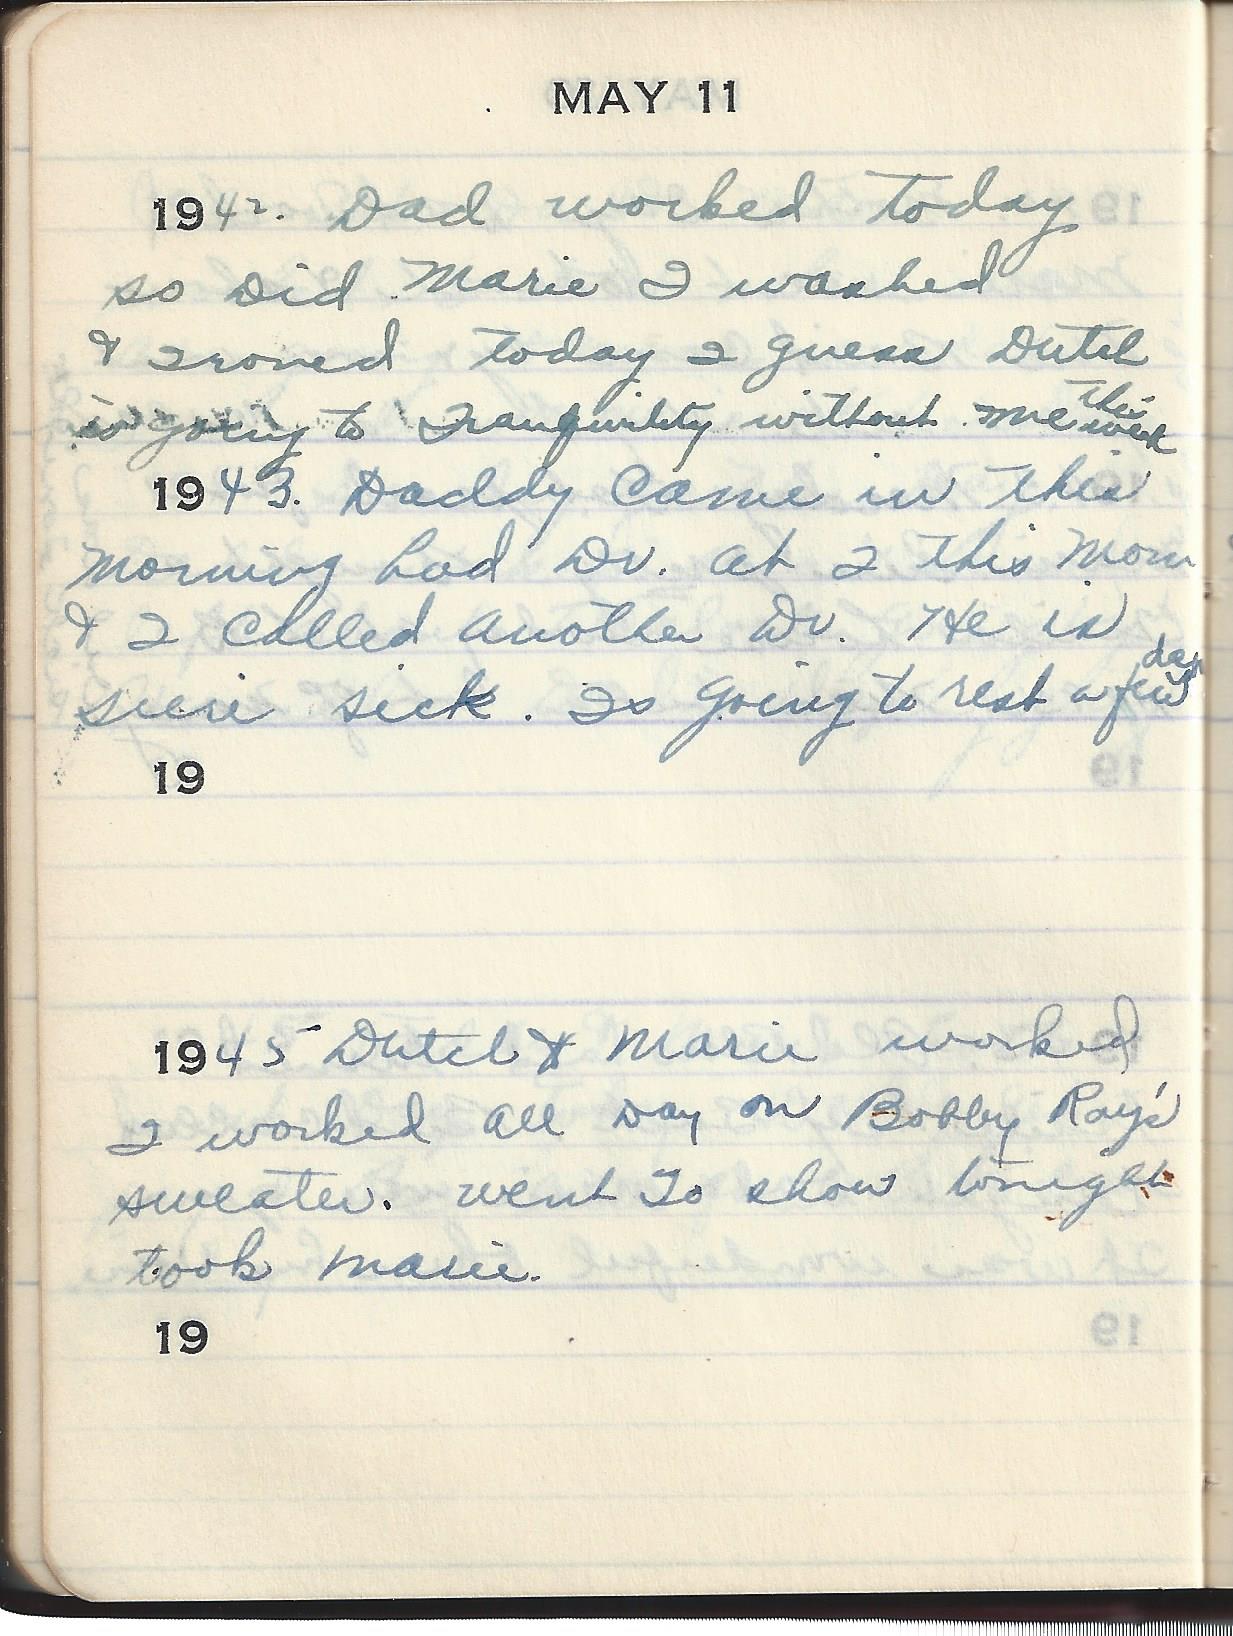 MAY 11
1942. Dad worked today
so Did Marie I washed
& Ironed today I guess Dutch
is going to Tranquility without me this week
1943. Daddy Came in this
morning had Dr. at 2 this Morn
& I Called Another Dr. He is
sure sick. Is Going to rest a few days
19
1945 Dutch & Marie worked
I worked all Day on Bobby Ray's
sweater. went To show tonight
took Marie.
19